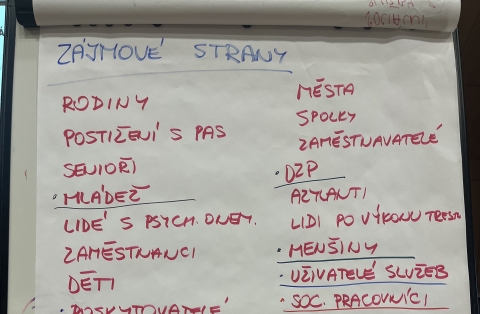 ZÁJMOVÉ STRANY
RODINY
POSTIŽENÍ S PAS
SENIOŘI
· MLÁDEŽ
LIDÉ S PSYCH. ONEM.
ZAMĚSTNANCI
DĚTI
· POSKYTOVATELÉ
MĚSTA
SPOLKY
ZAMĚSTNAVATELÉ
· DZP
AZYLANTI
LIDI PO VÝKONU TRESTU
· MENŠINY
· UŽIVATELÉ SLUŽEB
· SOC. PRACOVNÍCI